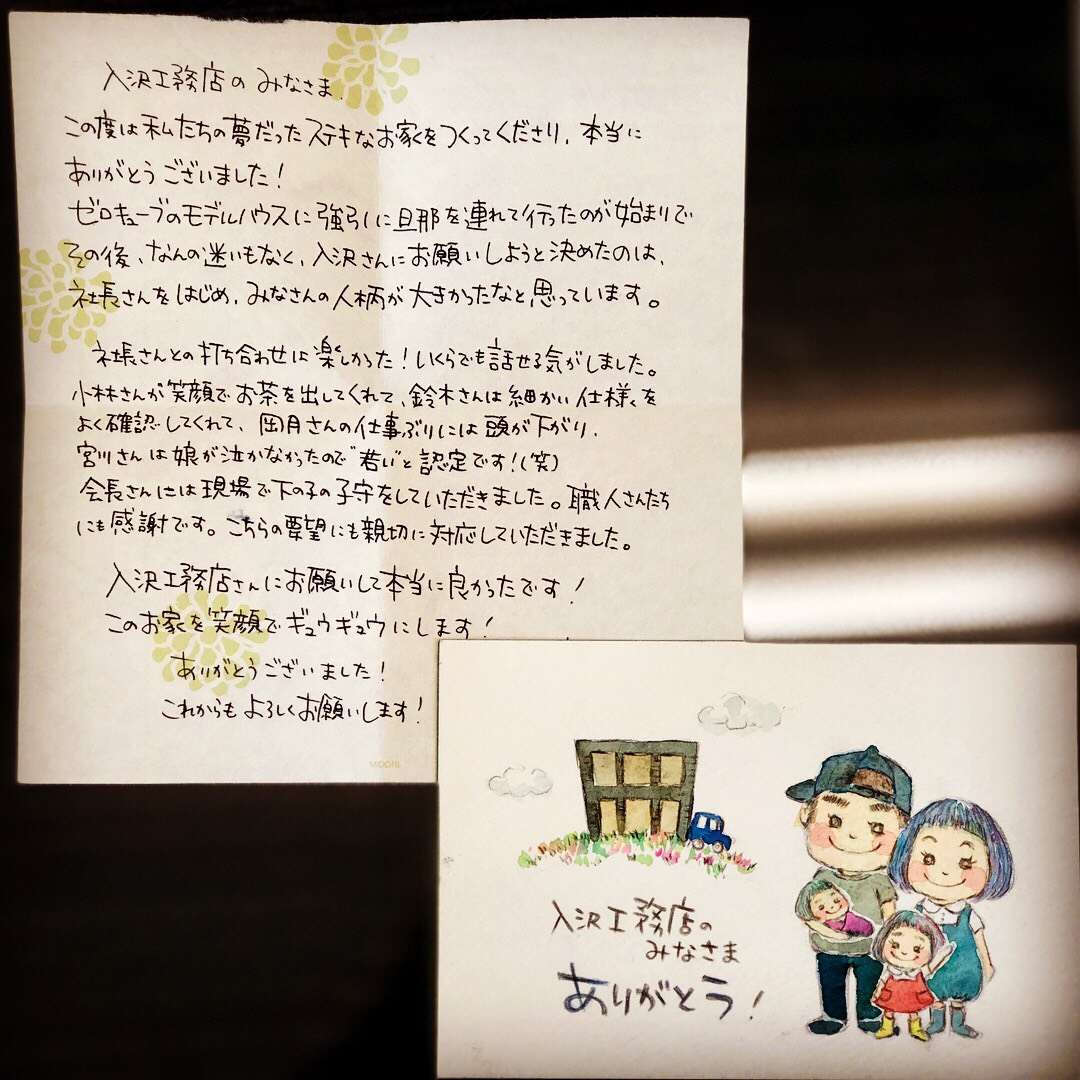 入沢工務店の みなさま
この度は私たちの夢だったステキなお家をつくってくださり、本当に
ありがとうございました!
ゼロキューブのモデルハウスに強引に旦那を連れて行ったのが始まりで
その後、なんの迷いもなく、入沢さんにお願いしようと決めたのは、
社長さんをはじめ、みなさんの人柄が大きかったなと思っています。
社長さんとの打ち合わせは楽しかった!いくらでも話せる気がしました。
小林さんが笑顔でお茶を出してくれて、鈴木さんは細かい仕様を
よく確認してくれて、岡月さんの仕事ぶりには頭が下がり、
宮川さんは娘が泣かなかったので"若い"と認定です!(笑)
会長さんには現場で下の子の子守をしていただきました。職人さんたち
にも感謝です。こちらの要望にも親切に対応していただきました。
入沢工務店さんにお願いして本当に良かったです!
このお家を笑顔でギュウギュウにします!
ありがとうございました!
これからもよろしくお願いします!
MIDORI
入沢工務店の
みなさま
ありがとう!